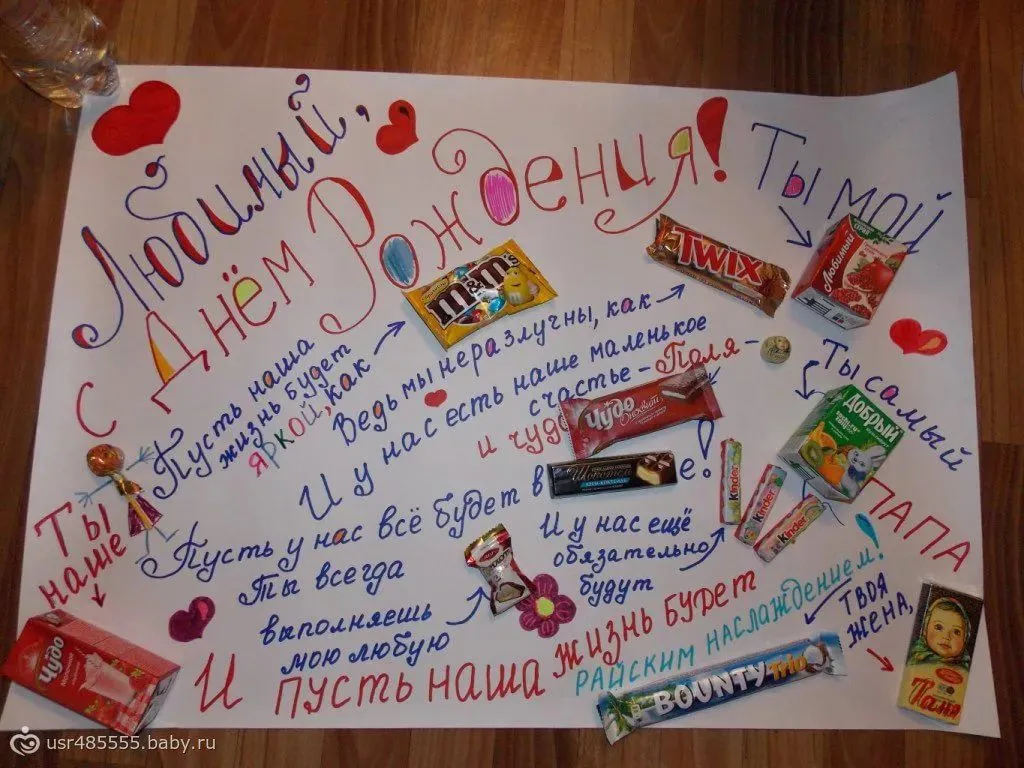 Любимый,
с Днём Рождения!
Ты мой
Любимый
TWIX
m&m's
Пусть наша
жизнь будет
яркой, как
Ведь мы неразлучны, как
И у нас есть наше маленькое
счастье – Поля –
и чудо
Чудо
Ты самый
Добрый
ПАПА
Пусть у нас всё будет в е!
Шоколаде
kinder
kinder
kinder
И у нас ещё
обязательно
будут
Ты всегда
выполняешь
мою любую
Ты
наше
Чудо
И пусть наша жизнь будет
райским наслаждением!
BOUNTY Trio
Твоя
жена,
Таня
usr485555.baby.ru